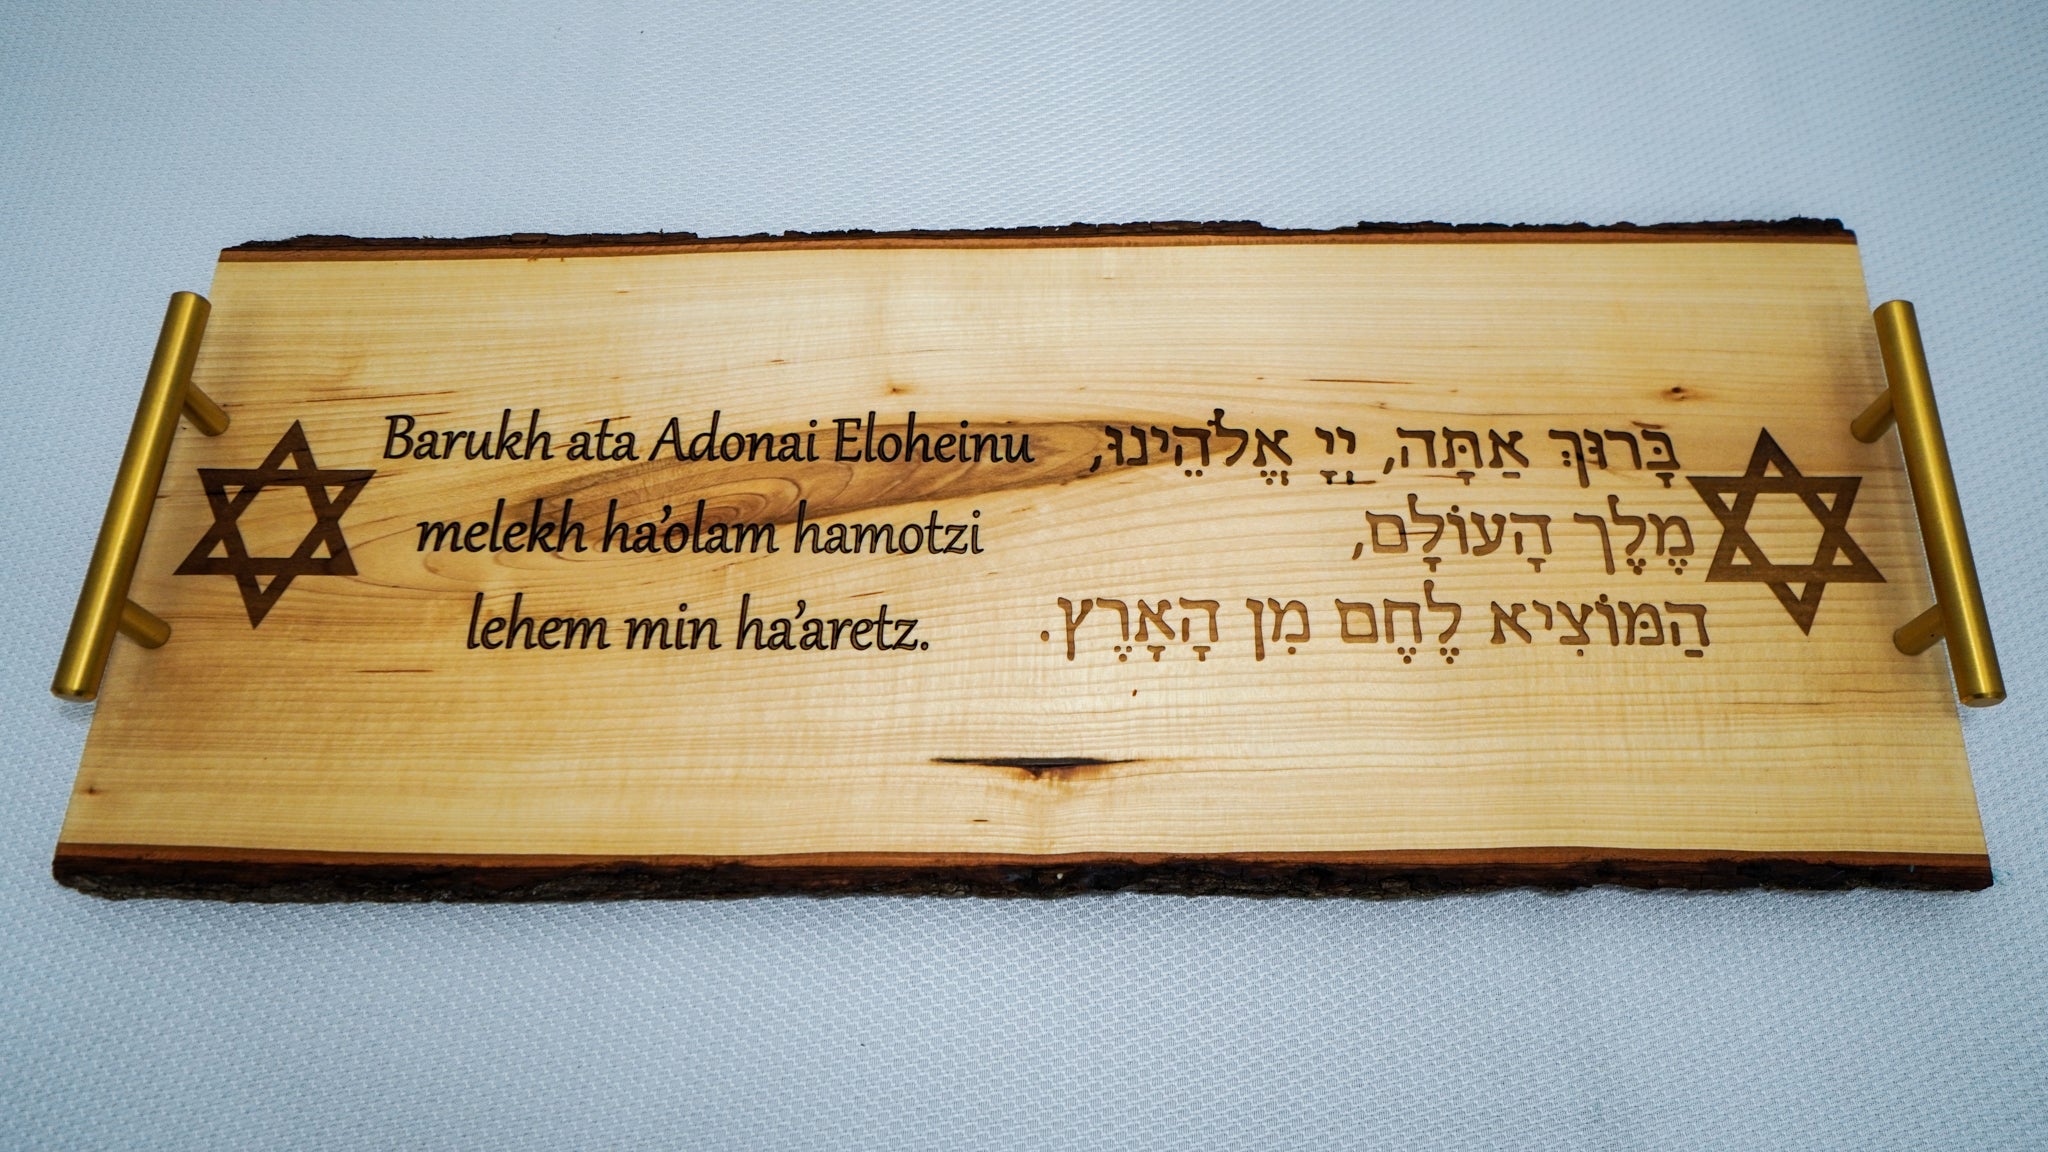 Barukh ata Adonai Eloheinu
melekh ha'olam hamotzi
lehem min ha'aretz.
בָּרוּךְ אַתָּה, יְיָ אֱלֹהֵינוּ,
מֶלֶךְ הָעוֹלָם,
הַמּוֹצִיא לֶחֶם מִן הָאָרֶץ.